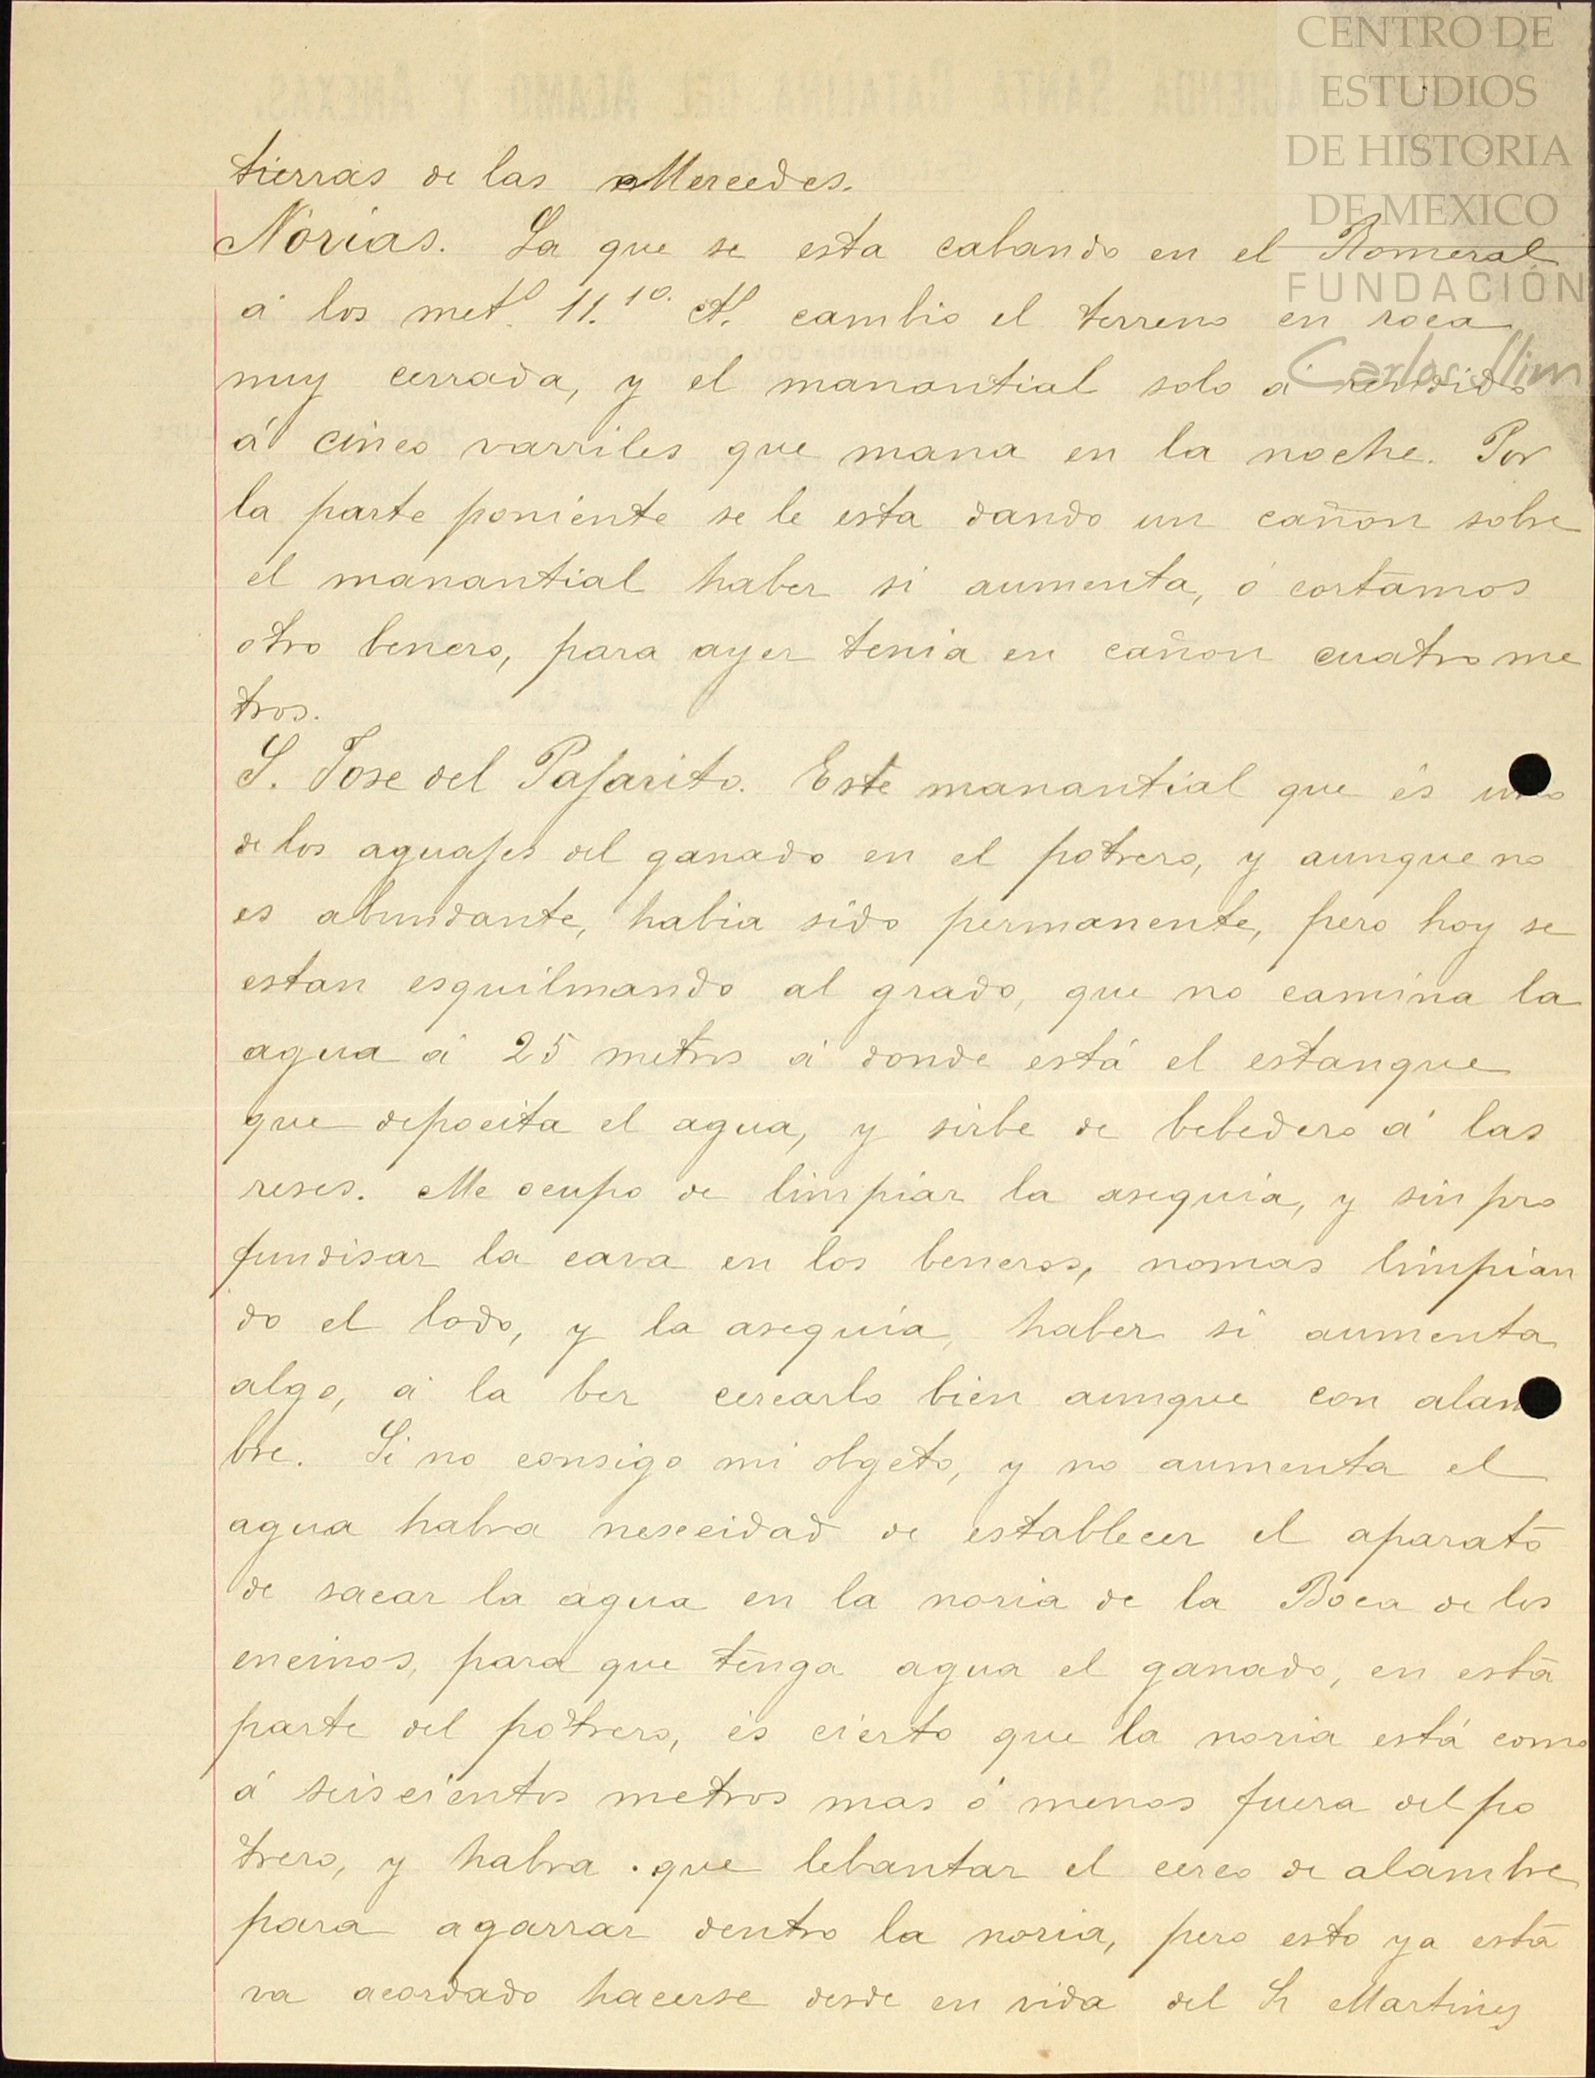 CENTRO DE
ESTUDIOS
DE HISTORIA
DE MEXICO
FUNDACIÓN
Carlos Slim
tierras de las Mercedes.
Norias. La que se esta cabando en el Romeral
á los met.s 11.10. ct.s cambio el terreno en roca
muy cerrada, y el manantial solo á rendido
á cinco varriles que mana en la noche. Por
la parte poniente se le esta dando un cañon sobre
el manantial haber si aumenta, ó cortamos
otro benero, para ayer tenia en cañon cuatro me
tros.
S. Jose del Pajarito. Este manantial que és uno
de los aguajes del ganado en el potrero, y aunque no
es abundante, habia sido permanente, pero hoy se
estan esquilmando al grado, que no camina la
agua á 25 metros á donde está el estanque
que depocita el agua, y sirbe de bebedero á las
reses. Me ocupo de limpiar la asequia, y sin pro
fundisar la cava en los beneros, nomas limpian
do el lodo, y la asequia, haber si aumenta
algo, á la ber cercarlo bien aunque con alam
bre. Si no consigo mi obgeto, y no aumenta el
agua habra nesecidad de establecer el aparato
de sacar la agua en la noria de la Boca de los
encinos, para que tenga agua el ganado, en esta
parte del potrero, és cierto que la noria está como
á seiscientos metros mas ó menos fuera del po
trero, y habra que lebantar el cerco de alambre
para agarrar dentro la noria, pero esto ya esta
va acordado hacerse desde en vida del Sr Martinez